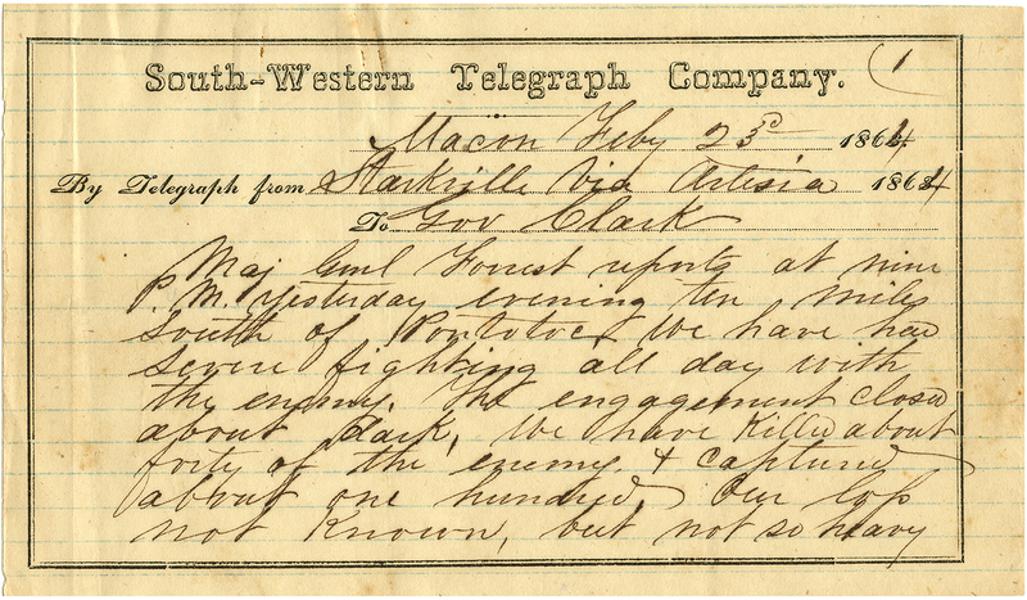 South-Western Telegraph Company. (1
Macon Feby 23d 1864
By Telegraph from Starkville Via Artesia 1864
To Gov Clark
Maj Genl Forrest reports at nine
P. M. Yesterday evening ten miles
South of Pontotoc We have had
Severe fighting all day with
the enemy. The engagement closed
about dark, We have Killed about
forty of the enemy. & captured
about one hundred, Our loss
not Known, but not so heavy